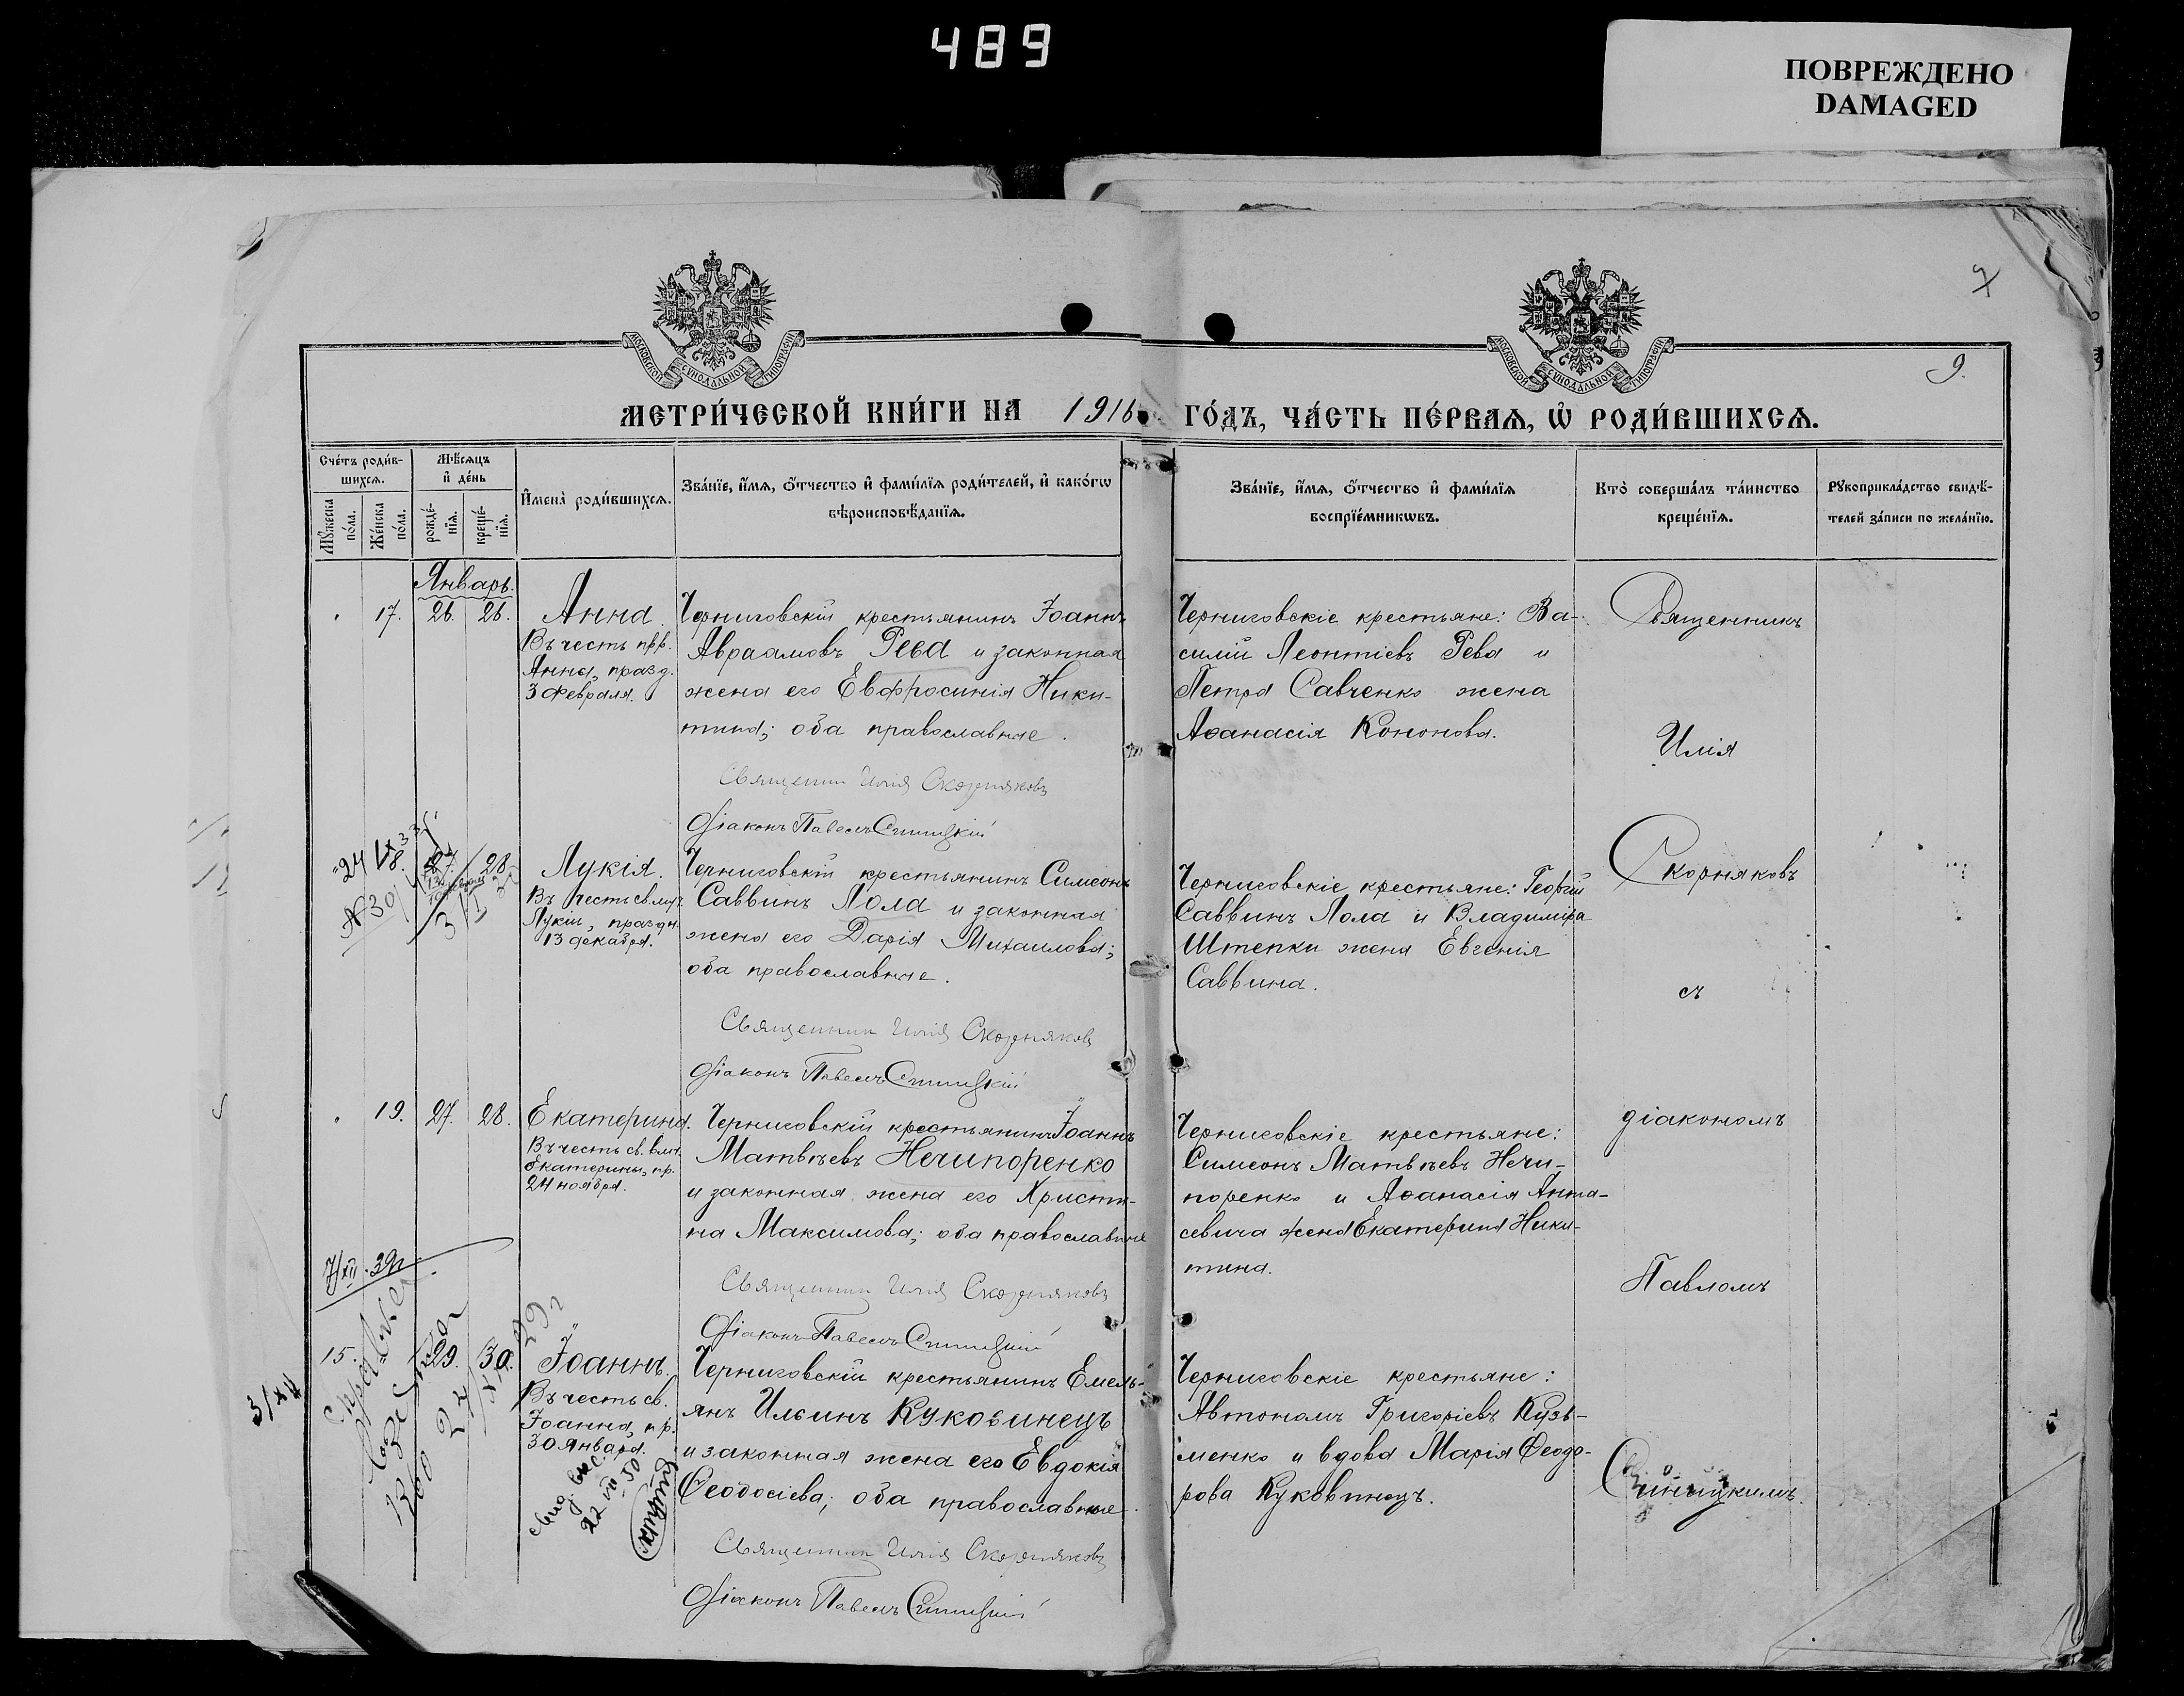 489
ПОВРЕЖДЕНО
DAMAGED
9
9.
МОСКОВСКОЙ СѴНОДАЛЬНОЙ ТИПОГРАФІИ
МОСКОВСКОЙ СѴНОДАЛЬНОЙ ТИПОГРАФІИ
МЕТРИ́ЧЕСКОЙ КНИ́ГИ НА 1916 ГО́ДЪ, ЧА́СТЬ ПЕ́РВАѦ, Ѡ҆ РОДИ́ВШИХСѦ.
Сче́тъ роди́в-
шихсѧ.
Мѣ́сѧцъ
и҆ де́нь
Мꙋ́жеска
по́ла.
Же́нска
по́ла.
рожде́-
нїѧ.
креще́-
нїѧ.
И҆мена̀ роди́вшихсѧ.
Зва́нїе, и҆́мѧ, ѻ҆́тчество и҆ фами́лїѧ роди́телей, и҆ како́гѡ
вѣроисповѣ́данїѧ.
Зва́нїе, и҆́мѧ, ѻ҆́тчество и҆ фами́лїѧ
воспрїе́мникѡвъ.
Кто̀ соверша́лъ та́инство
креще́нїѧ.
Рꙋкоприкла́дство свидѣ́-
телей за́писи по жела́нїю.
Январь.
17. 26. 26.
Анна.
Въ честь прр.
Анны, празд.
3 Февраля.
Черниговскій крестьянинъ Іоаннъ
Авраамовъ Рева и законная
жена его Евфросинія Ники-
тина; оба православные.
Священник Илія Скорняковъ
Діаконъ Павелъ Синицкій
Черниговскіе крестьяне: Ва-
силій Леонтіевъ Рева и
Петра Савченко жена
Аѳанасія Кононова.
Священникъ
Илія
Скорняковъ
съ
діакономъ
Павломъ
Синицкимъ.
27. 28.
Лукія.
Въ честь св. муч.
Лукіи, праздн.
13 декабря.
Черниговскій крестьянинъ Симеонъ
Саввинъ Лола и законная
жена его Дарія Михаилова;
оба православные.
Священник Илія Скорняковъ
Діаконъ Павелъ Синицкій
Черниговскіе крестьяне: Георгій
Саввинъ Лола и Владиміра
Штепки жена Евгенія
Саввина.
19. 27. 28.
Екатерина.
Въ честь св. влм.
Екатерины, пр.
24 ноября.
Черниговскій крестьянинъ Іоаннъ
Матвѣевъ Нечипоренко
и законная жена его Христи-
на Максимова; оба православные
Священник Илія Скорняковъ
Діаконъ Павелъ Синицкій
Черниговскіе крестьяне:
Симеонъ Матвѣевъ Нечи-
поренко и Аѳанасія Анта-
севича жена Екатерина Ники-
тина.
15. 29. 30.
Іоаннъ.
Въ честь св.
Іоанна, пр.
30 января.
Черниговскій крестьянинъ Емель-
янъ Ильинъ Куковинецъ
и законная жена его Евдокія
Ѳеодосіева; оба православные.
Священник Илія Скорняковъ
Діаконъ Павелъ Синицкій
Черниговскіе крестьяне:
Автономъ Григоріевъ Кузь-
менко и вдова Марія Ѳеодо-
рова Куковинецъ.